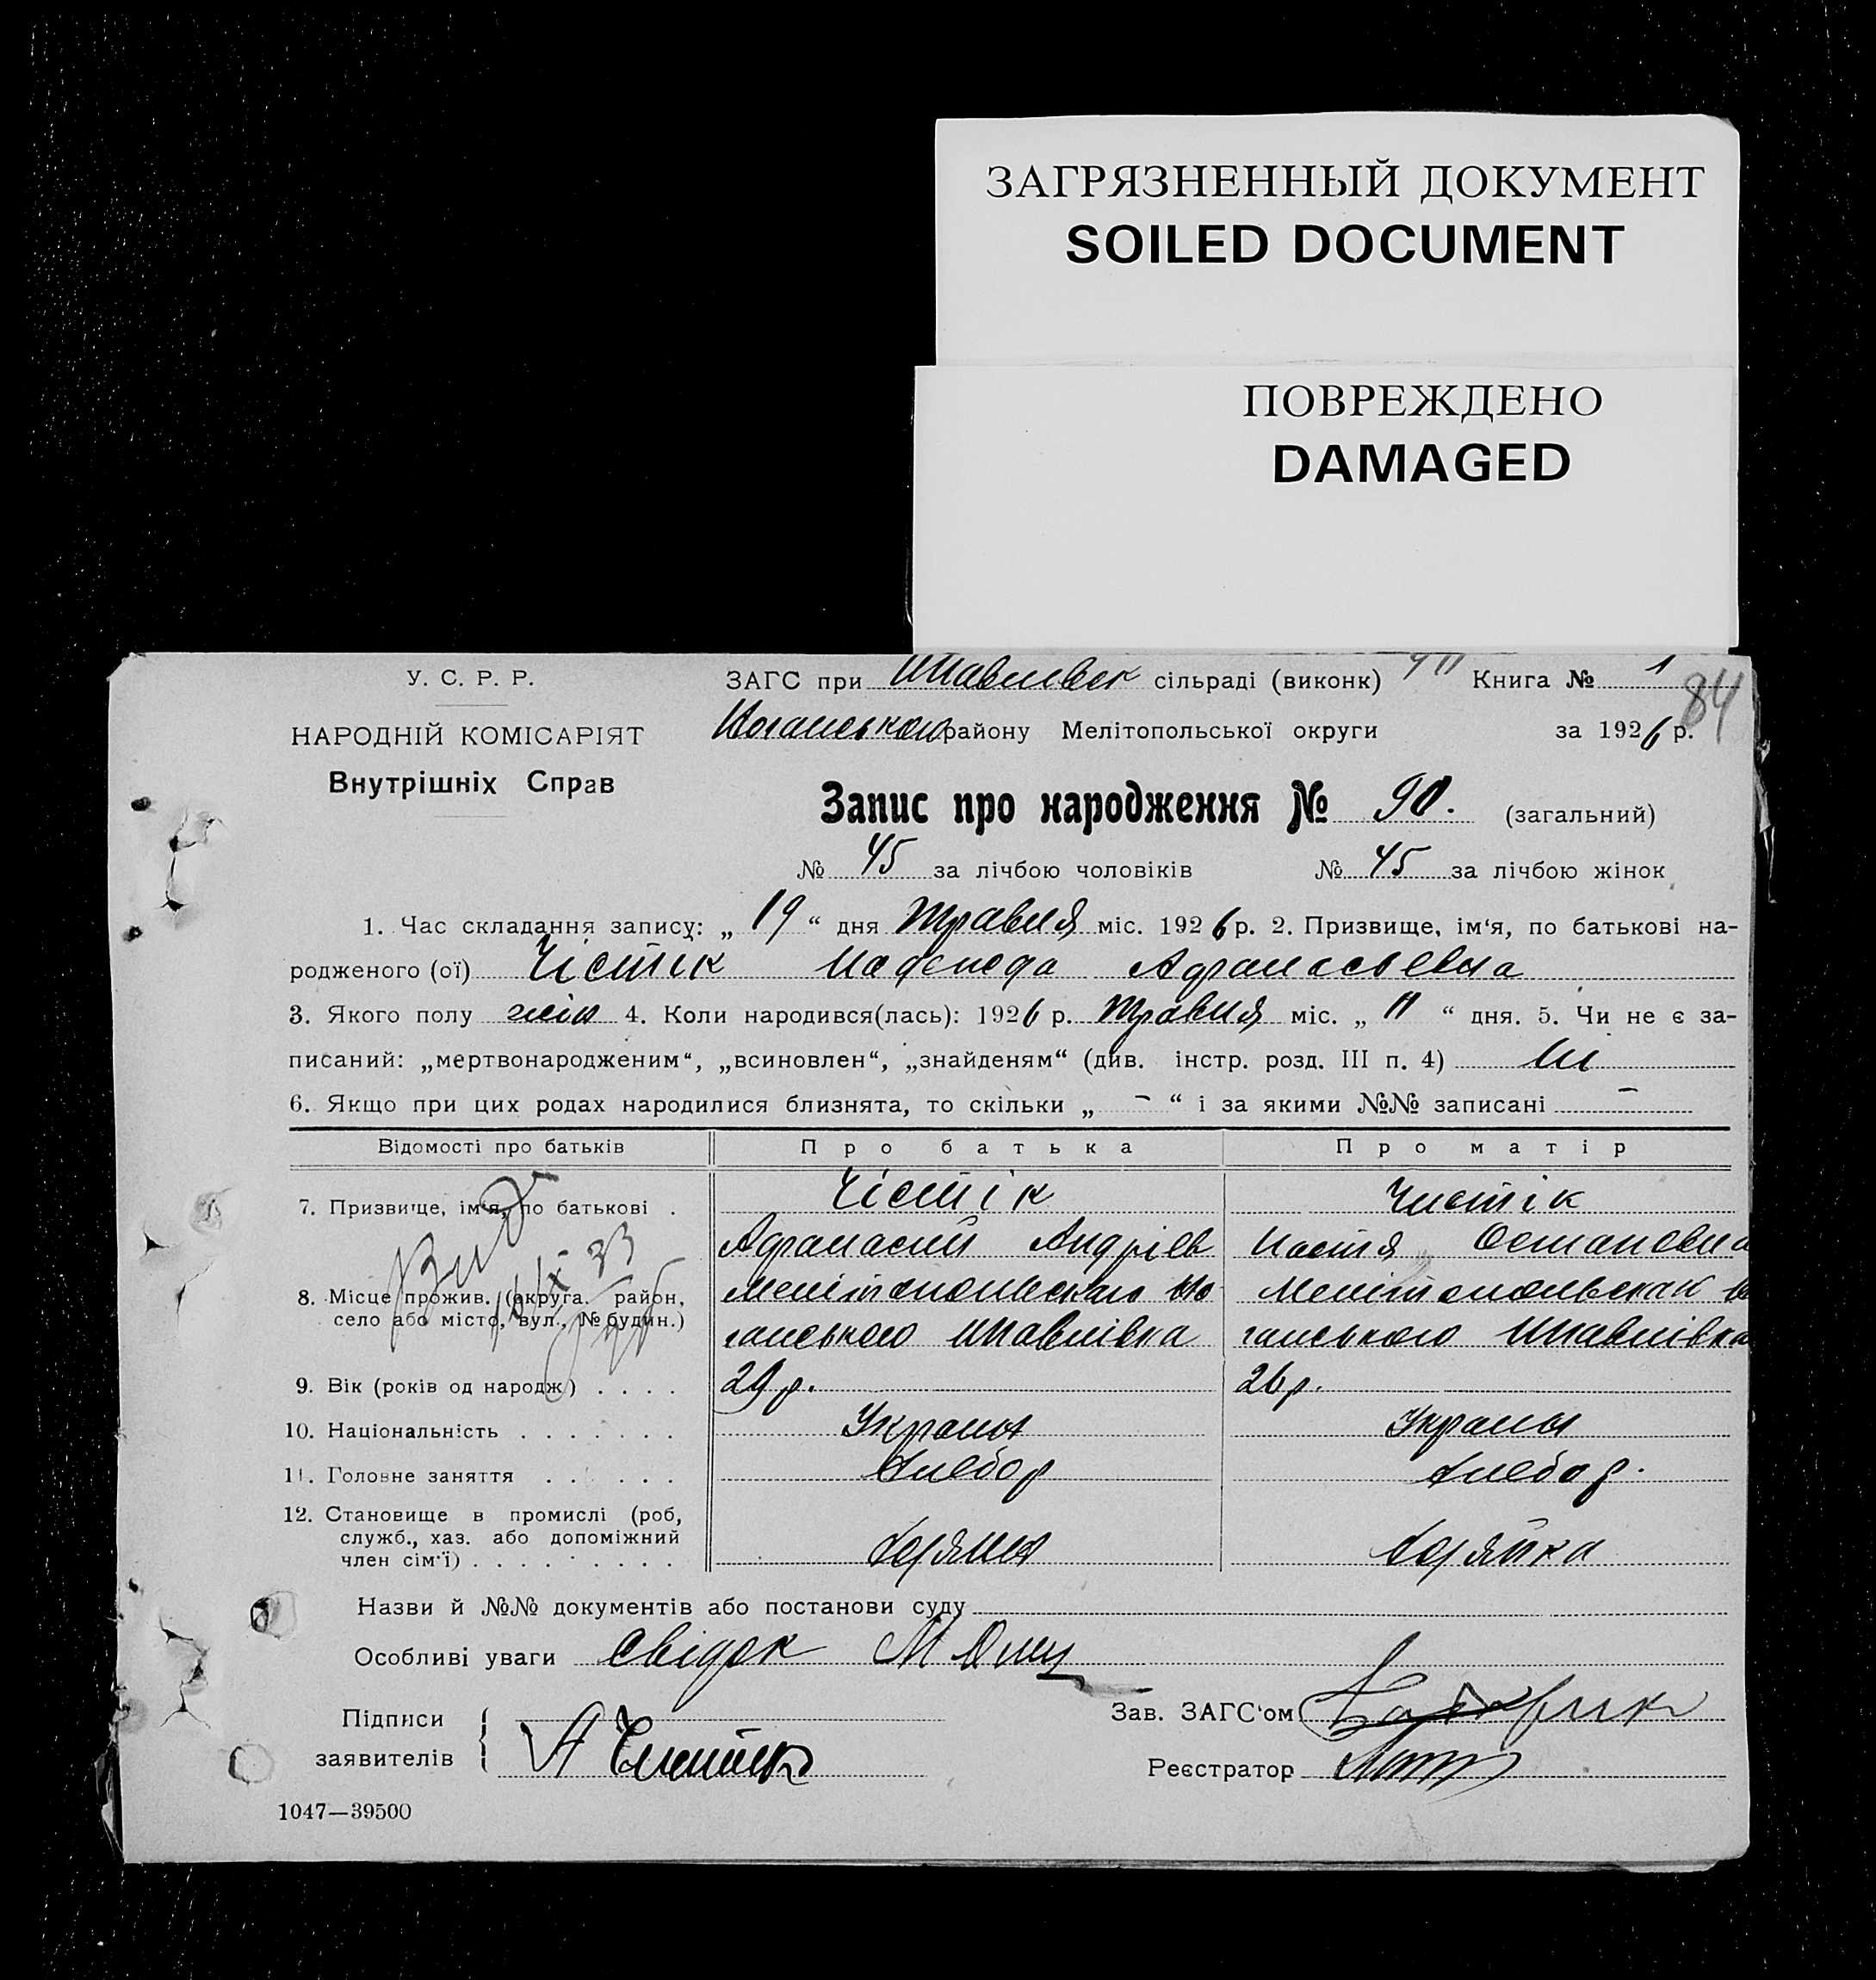 ЗАГРЯЗНЕННЫЙ ДОКУМЕНТ
SOILED DOCUMENT
ПОВРЕЖДЕНО
DAMAGED
У. С. Р. Р.
НАРОДНІЙ КОМІСАРІЯТ
Внутрішніх Справ
ЗАГС при сільраді (виконк) Книга № 1
84
Ногаського району Мелітопольської округи за 1926 р.
Запис про народження № 90. (загальний)
№ 45 за лічбою чоловіків № 45 за лічбою жінок
1. Час складання запису: „ 19 “ дня травня міс. 1926 р. 2. Призвище, ім‘я, по батькові на-
родженого (ої) Чістік Надежда Афанасьевна
3. Якого полу жін 4. Коли народився(лась): 1926 р. травня міс. „ 11 “ дня. 5. Чи не є за-
писаний: „мертвонародженим“, „всиновлен“, „знайденям“ (див. інстр. розд. III п. 4) ні
6. Якщо при цих родах народилися близнята, то скільки „ – “ і за якими №№ записані –
Відомості про батьків Про батька Про матір
7. Призвище, ім‘я, по батькові . Чістік Чистік
Афанасий Андрієв Настя Остаповна
8. Місце прожив. (округа. район,
село або місто, вул., № будин.)
ганського Шпавлівка ганського Шпавлівка
9. Вік (років од народж) . . . . 29 р. 26 р.
10. Національність . . . . . . . Україн Україн
11. Головне заняття . . . . . . Хлебор Хлебор.
12. Становище в промислі (роб,
служб., хаз. або допоміжний
член сім‘ї) . . . . . . . . . Хозяин Хозяйка
Назви й №№ документів або постанови суду
Особливі уваги Свідок М
Підписи
заявителів А Чистік
Зав. ЗАГС‘ом
Реєстратор
1047—39500